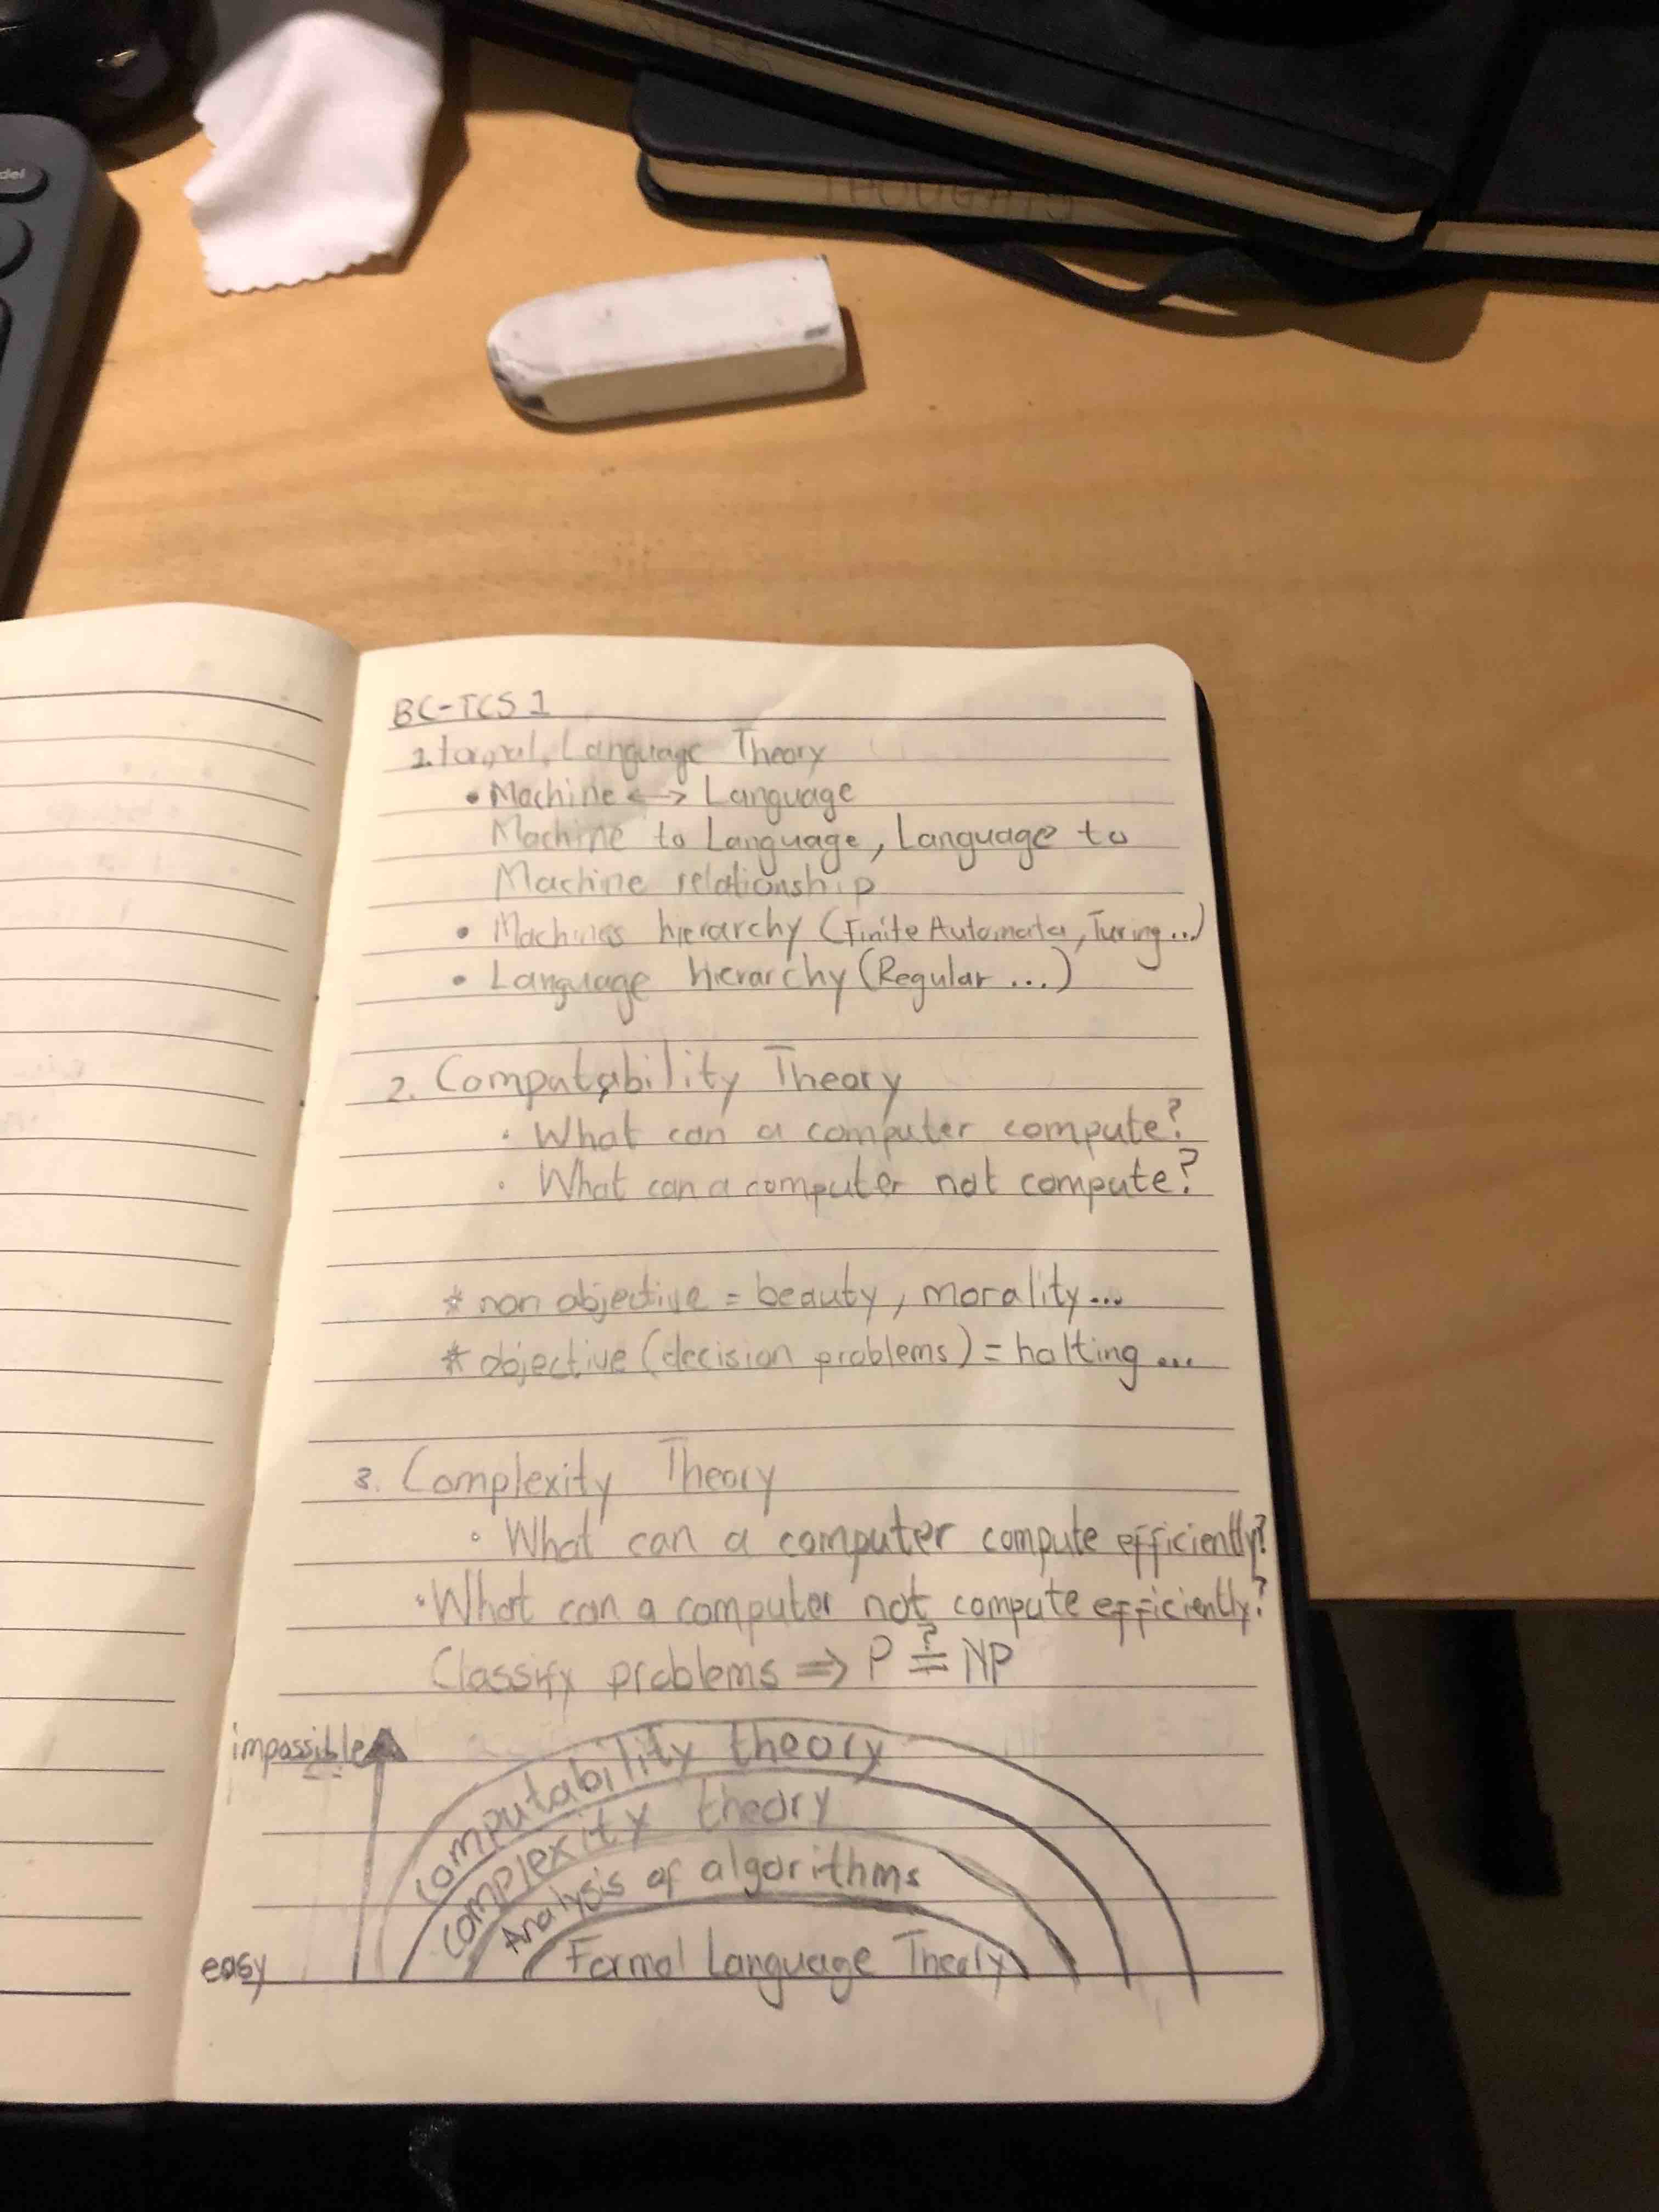 del
THOUGHTS
BC-TCS 1
1. Formal Language Theory
• Machine <-> Language
Machine to Language, Language to
Machine relationship
• Machines hierarchy (Finite Automata, Turing...)
• Language hierarchy (Regular ...)
2. Computability Theory
• What can a computer compute?
• What can a computer not compute?
* non objective = beauty, morality...
* objective (decision problems) = halting ...
3. Complexity Theory
• What can a computer compute efficiently?
• What can a computer not compute efficiently?
Classify problems => P ≟ NP
impossible
computability theory
complexity theory
Analysis of algorithms
Formal Language Theory
easy